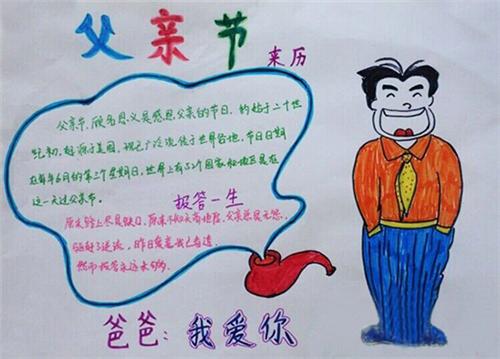 父亲节
来历
父亲节,顾名思义是感恩父亲的节日,约始于二十世
纪初,起源于美国,现已广泛流传于世界各地,节日日期
在每年6月的第三个星期日,世界上有52个国家和地区是在
这一天过父亲节。
报答一生
父亲总是无怨
昨日
然而报答永远未够
爸爸:我爱你